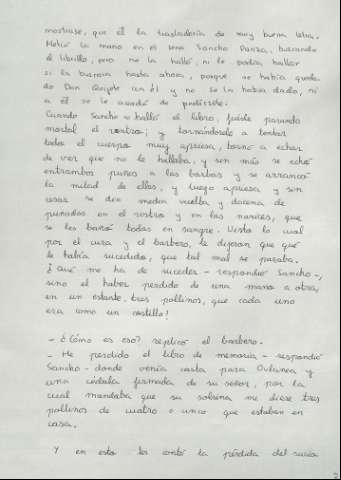 mostrase, que él la trasladaría de muy buena letra.
Metió la mano en el seno Sancho Panza, buscando
el librillo, pero no le halló, ni le podía hallar
si le buscara hasta ahora, porque se había queda-
do Don Quijote con él y no se le había dado, ni
a él se le acordó de pedírsele.
Cuando Sancho no halló el libro, fuésele parando
mortal el rostro; y tornándosele a tentar
todo el cuerpo muy apriesa, tornó a echar
de ver que no le hallaba, y sin más se echó
entrambos puños a las barbas y se arrancó
la mitad de ellas, y luego apriesa y sin
cesar se dio media vuelta y docena de
puñadas en el rostro y en las narices, que
se las bañó todas en sangre. Visto lo cual
por el cura y el barbero, le dijeron que qué
le había sucedido, que tal mal se paraba.
¿Qué me ha de suceder - respondió Sancho -,
sino el haber perdido de una mano a otra,
en un estante, tres pollinos, que cada uno
era como un castillo?
- ¿Cómo es eso? replicó el barbero.
- He perdido el libro de memoria - respondió
Sancho - donde venía carta para Dulcinea y
una cédula firmada de su señor, por la
cual mandaba que su sobrina me diese tres
pollinos de cuatro o cinco que estaban en
casa.
Y en esto les contó la pérdida del rucio